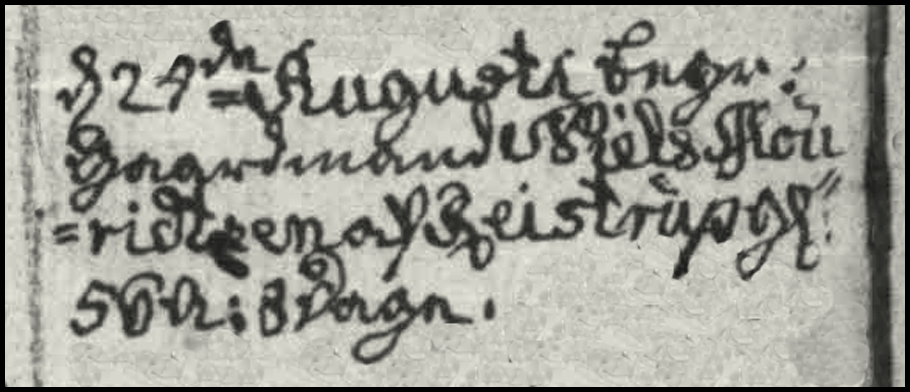 d 24de Augusti begr:
Gaardmand Niels Mou
=ridtzen af Reistrup gl:
56 A: 8 Dage.